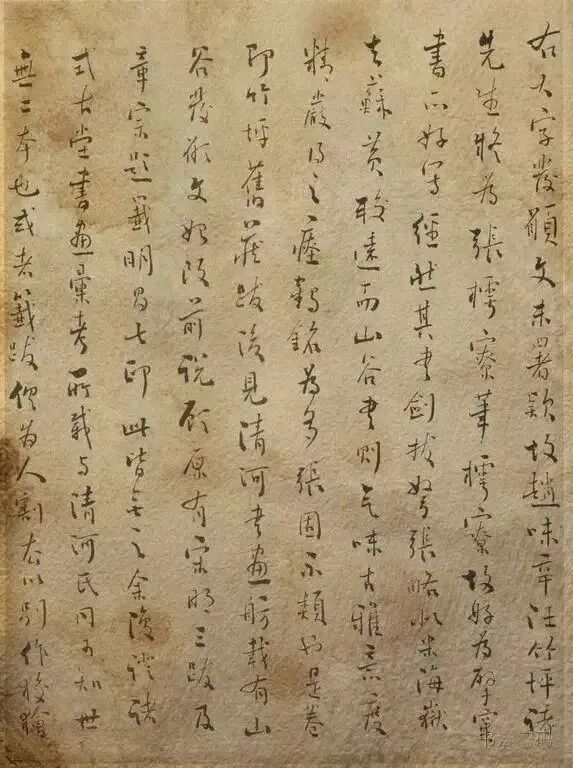 右大字發願文未署款故趙味辛汪竹坪諸
先生疑為張樗寮筆樗寮故好為擘窠
書亦好寫經然其書劍拔弩張略似米海嶽
去蘇黃較遠而山谷書則氣味古雅意度
精嚴得之瘞鶴銘為多張固不類也是卷
即竹坪舊藏跋後見清河書畫舫載有山
谷發願文始改前說顧原有宋明三跋及
章宗題籤明昌七印此皆無之余復證諸
式古堂書畫彙考所載与清河氏同可知世
無二本也或者籤跋俱為人割去以別作狡獪